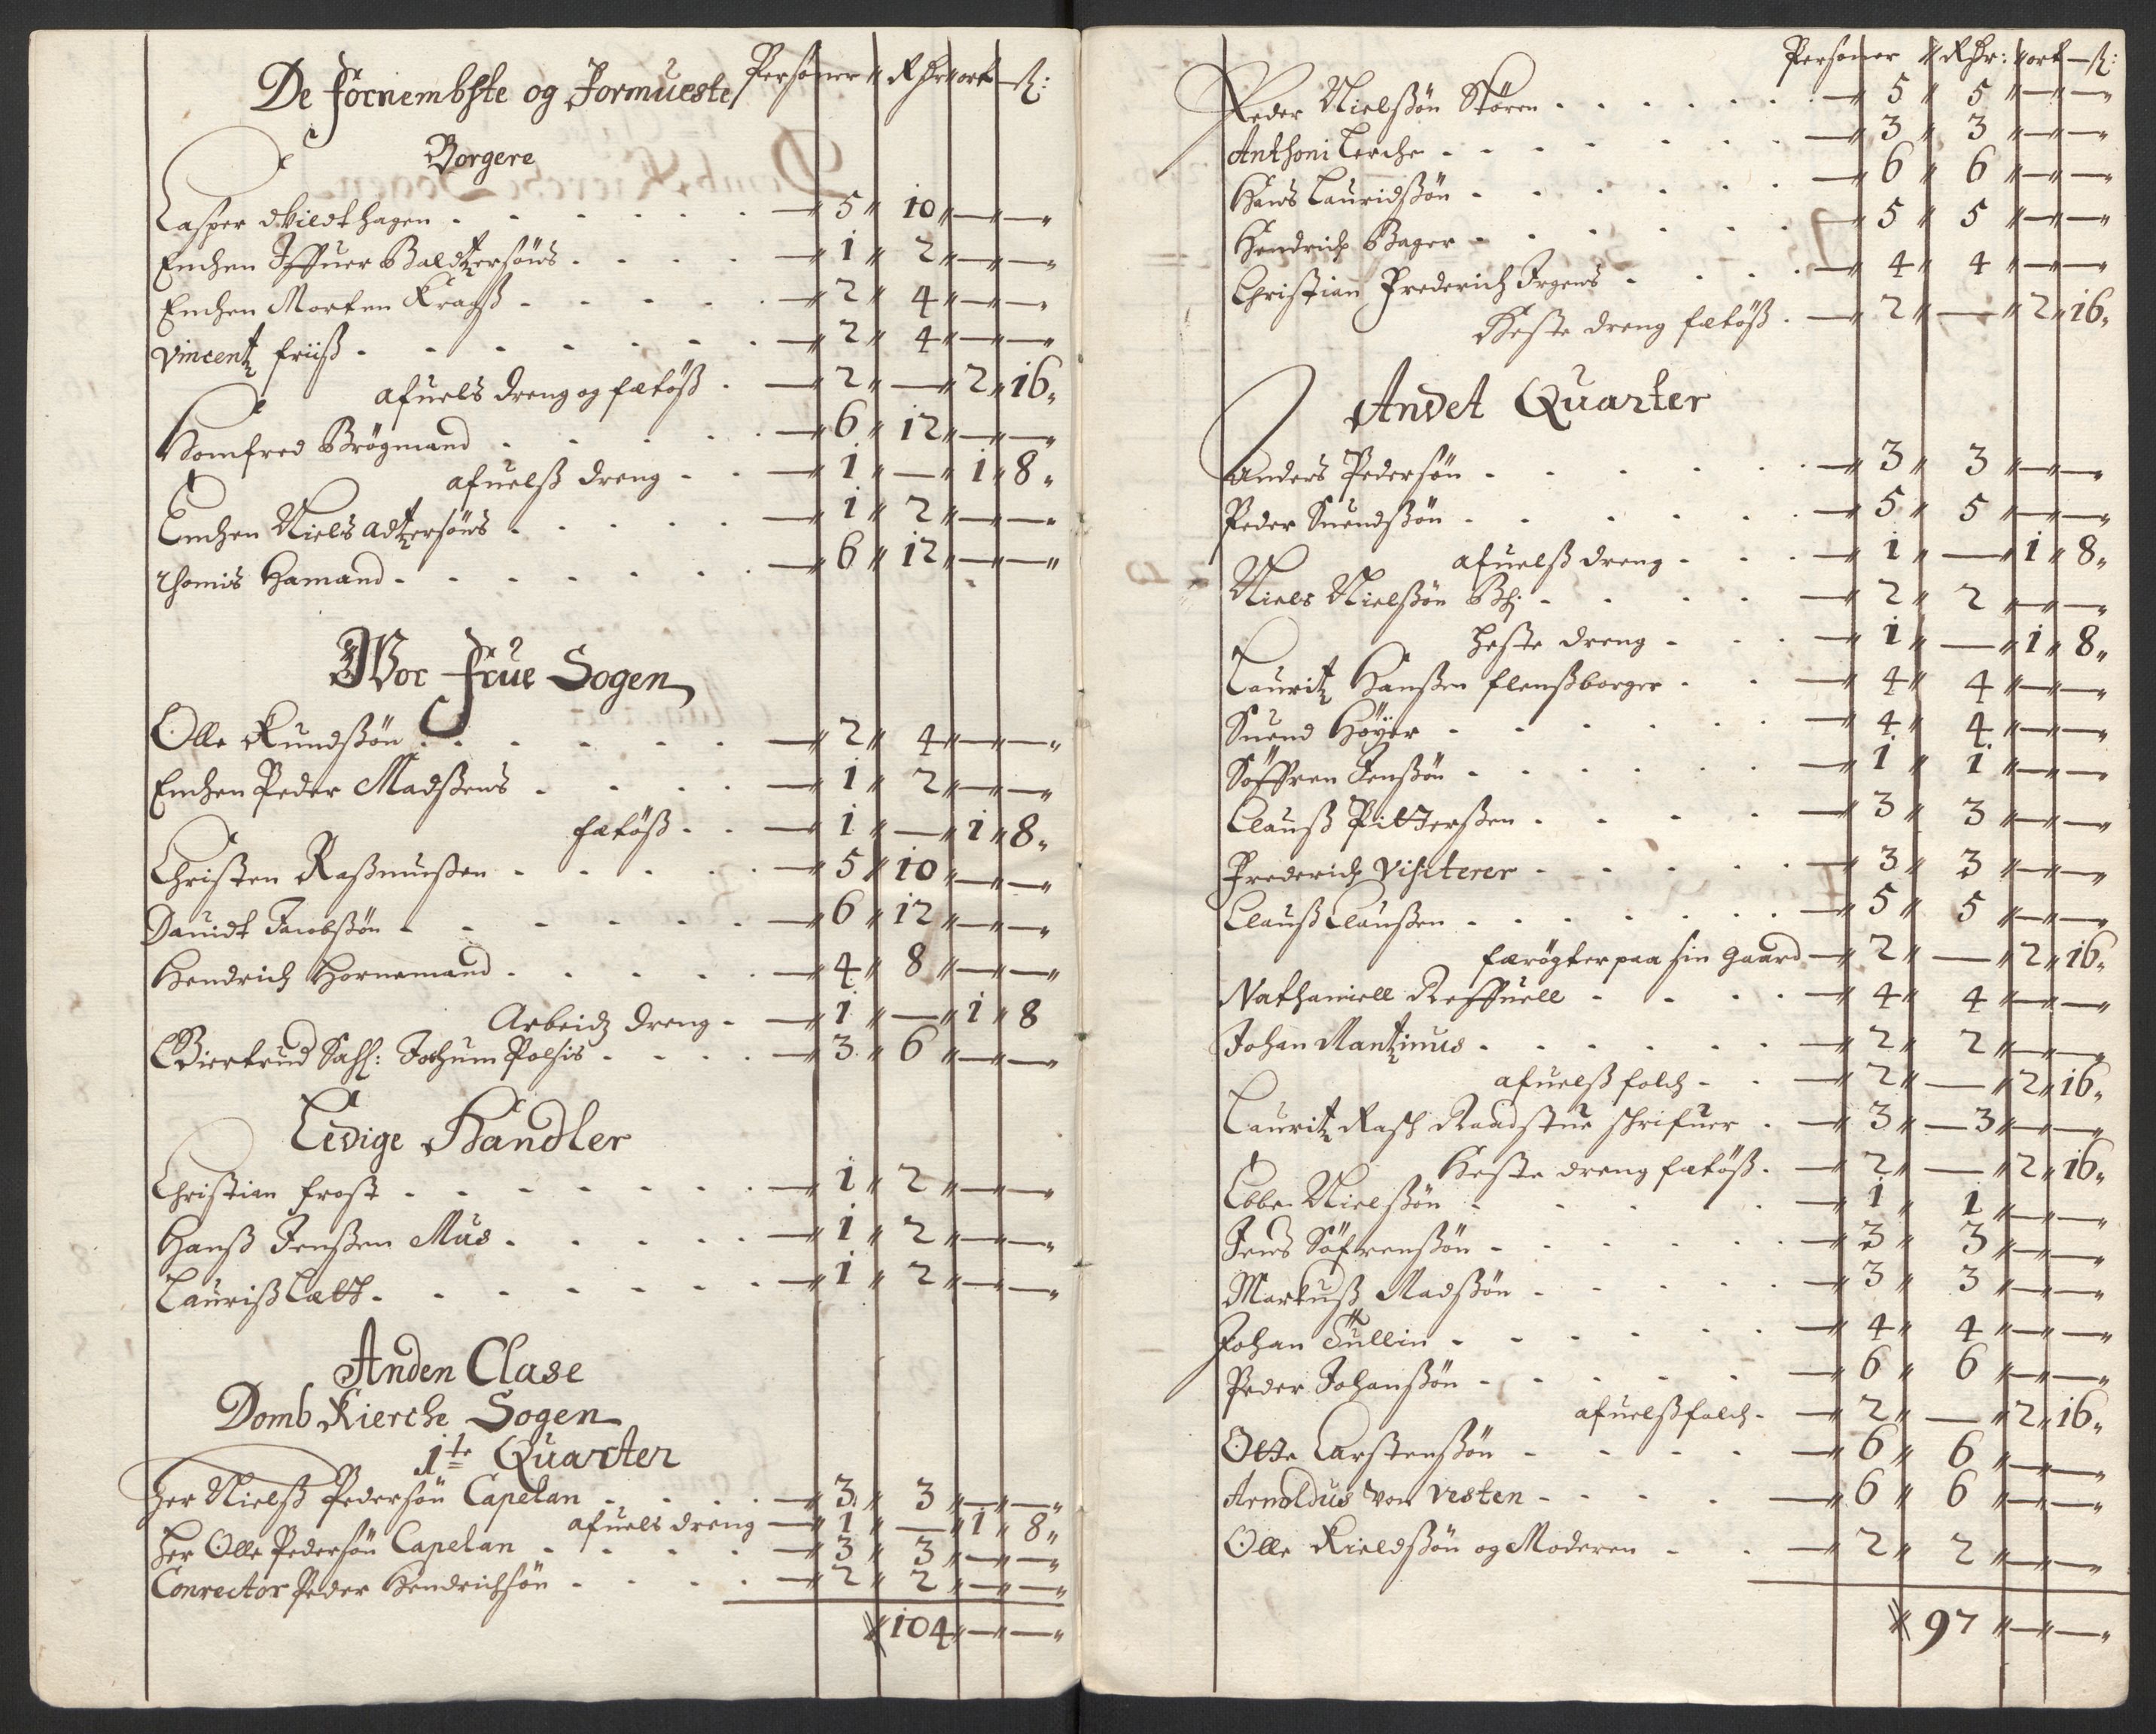 De fornembste og Formueste Personer Rdr ort ß:
Borgere
Casper dWildthagen - 5 10 — —
Enchen Iffuer Baldtzersøns - 1 2 — —
Enchen Morten Kragß - 2 4 — —
Vincentz friiß - 2 4 — —
afuels dreng og fætøß - 2 — 2 16
Homfred Brøgmand - 6 12 — —
afuelß dreng - 1 — 1 8
Enchen Niels Adtzersøns - 1 2 — —
Thomis Hamand - 6 12 — —
Wor Frue Sogen
Olle Kundßøn - 2 4 — —
Enchen Peder Madßens - 1 2 — —
fætøß - 1 — 1 8
Christen Raßmußen - 5 10 — —
Dauidt Jacobßøn - 6 12 — —
Hendrich Hornemand - 4 8 — —
Arbeidz dreng - 1 — 1 8
Giertrud Sahl: Jochum Polsis - 3 6 — —
Ledige Handler
Christian frost - 1 2 — —
Hanß Jenßen Mus - 1 2 — —
Lauriß Lætt - 1 2 — —
Anden Clase
Domb Kierche Sogen
1te Quarter
Her Nielß Pedersøn Capelan - 3 3 — —
afuels dreng - 1 — 1 8
Her Olle Pedersøn Capelan - 3 3 — —
Conrector Peder Hendrichsøn - 2 2 — —
104 — —
Personer Rdr: ort ß:
Peder Nielßøn Støren - 5 5 — —
Anthoni Lerche - 3 3 — —
Hans Lauridßøn - 6 6 — —
Hendrich Bager - 5 5 — —
Christian Frederich Irgens - 4 4 — —
Heste dreng fætøß - 2 — 2 16
Andet Quarter
Anders Pedersøn - 3 3 — —
Peder Suendßøn - 5 5 — —
afuelß dreng - 1 — 1 8
Niels Nielßøn - 2 2 — —
Heste dreng - 1 — 1 8
Lauritz Hanßen flenßborger - 4 4 — —
Suend Høyer - 4 4 — —
Søffren Jenßøn - 1 1 — —
Clauß Pitterßen - 3 3 — —
Frederich Visiterer - 3 3 — —
Clauß Claußen - 5 5 — —
færøgter paa sin gaard - 2 — 2 16
Nathaniell Reffuell - 4 4 — —
Johan Mantzinus - 2 2 — —
afuelß folch - 2 — 2 16
Lauritz Rasch Raadstue schrifuer - 3 3 — —
Heste dreng fætøß - 2 — 2 16
Ebbe Nielßøn - 1 1 — —
Jens Søfrenßøn - 3 3 — —
Markuß Madßøn - 3 3 — —
Johan Tullin - 4 4 — —
Peder Johanßøn - 6 6 — —
afuelß folch - 2 — 2 16
Otte Carstenßøn - 6 6 — —
Arnoldus Von Vesten - 6 6 — —
Olle Kieldßøn og Moderen - 2 2 — —
97 — —